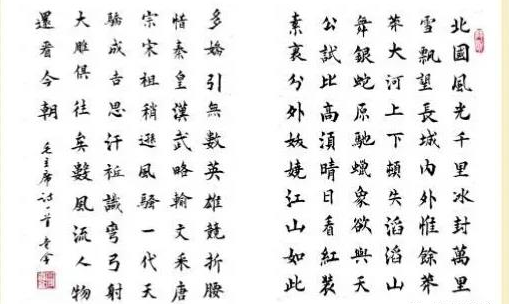 北國風光千里冰封萬里
雪飄望長城內外惟餘莽
莽大河上下頓失滔滔山
舞銀蛇原馳蠟象欲與天
公試比高須晴日看紅裝
素裹分外妖嬈江山如此
多嬌引無數英雄競折腰
惜秦皇漢武略輸文采唐
宗宋祖稍遜風騷一代天
驕成吉思汗祗識彎弓射
大雕俱往矣數風流人物
還看今朝 毛主席詩一首